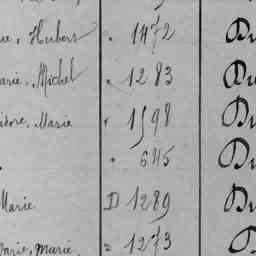 ue, Hubert . 1472 Du
arie, Michel . 1283 Du
idore, Marie . 1598 Du
. 645 Du
Marie D 1289 Du
Marie, Marie = 1273 D